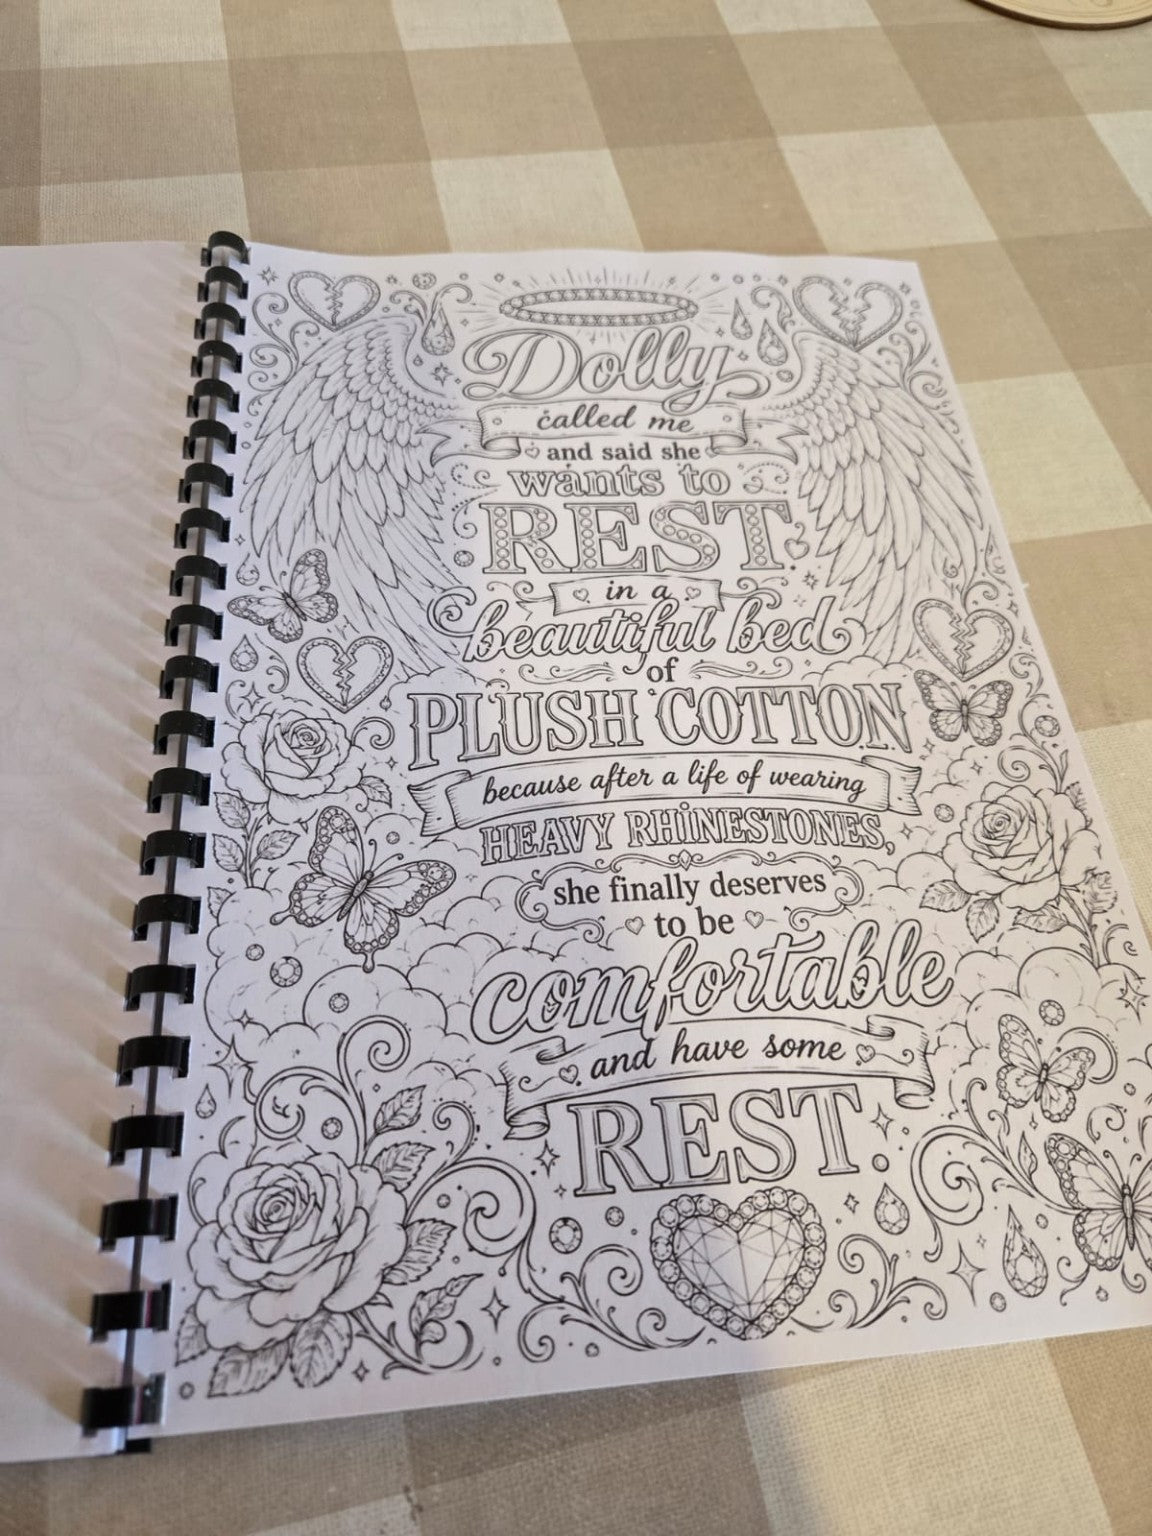 Dolly
called me
and said she
wants to
REST
in a
beautiful bed
of
PLUSH COTTON
because after a life of wearing
HEAVY RHINESTONES,
she finally deserves
to be
comfortable
and have some
REST